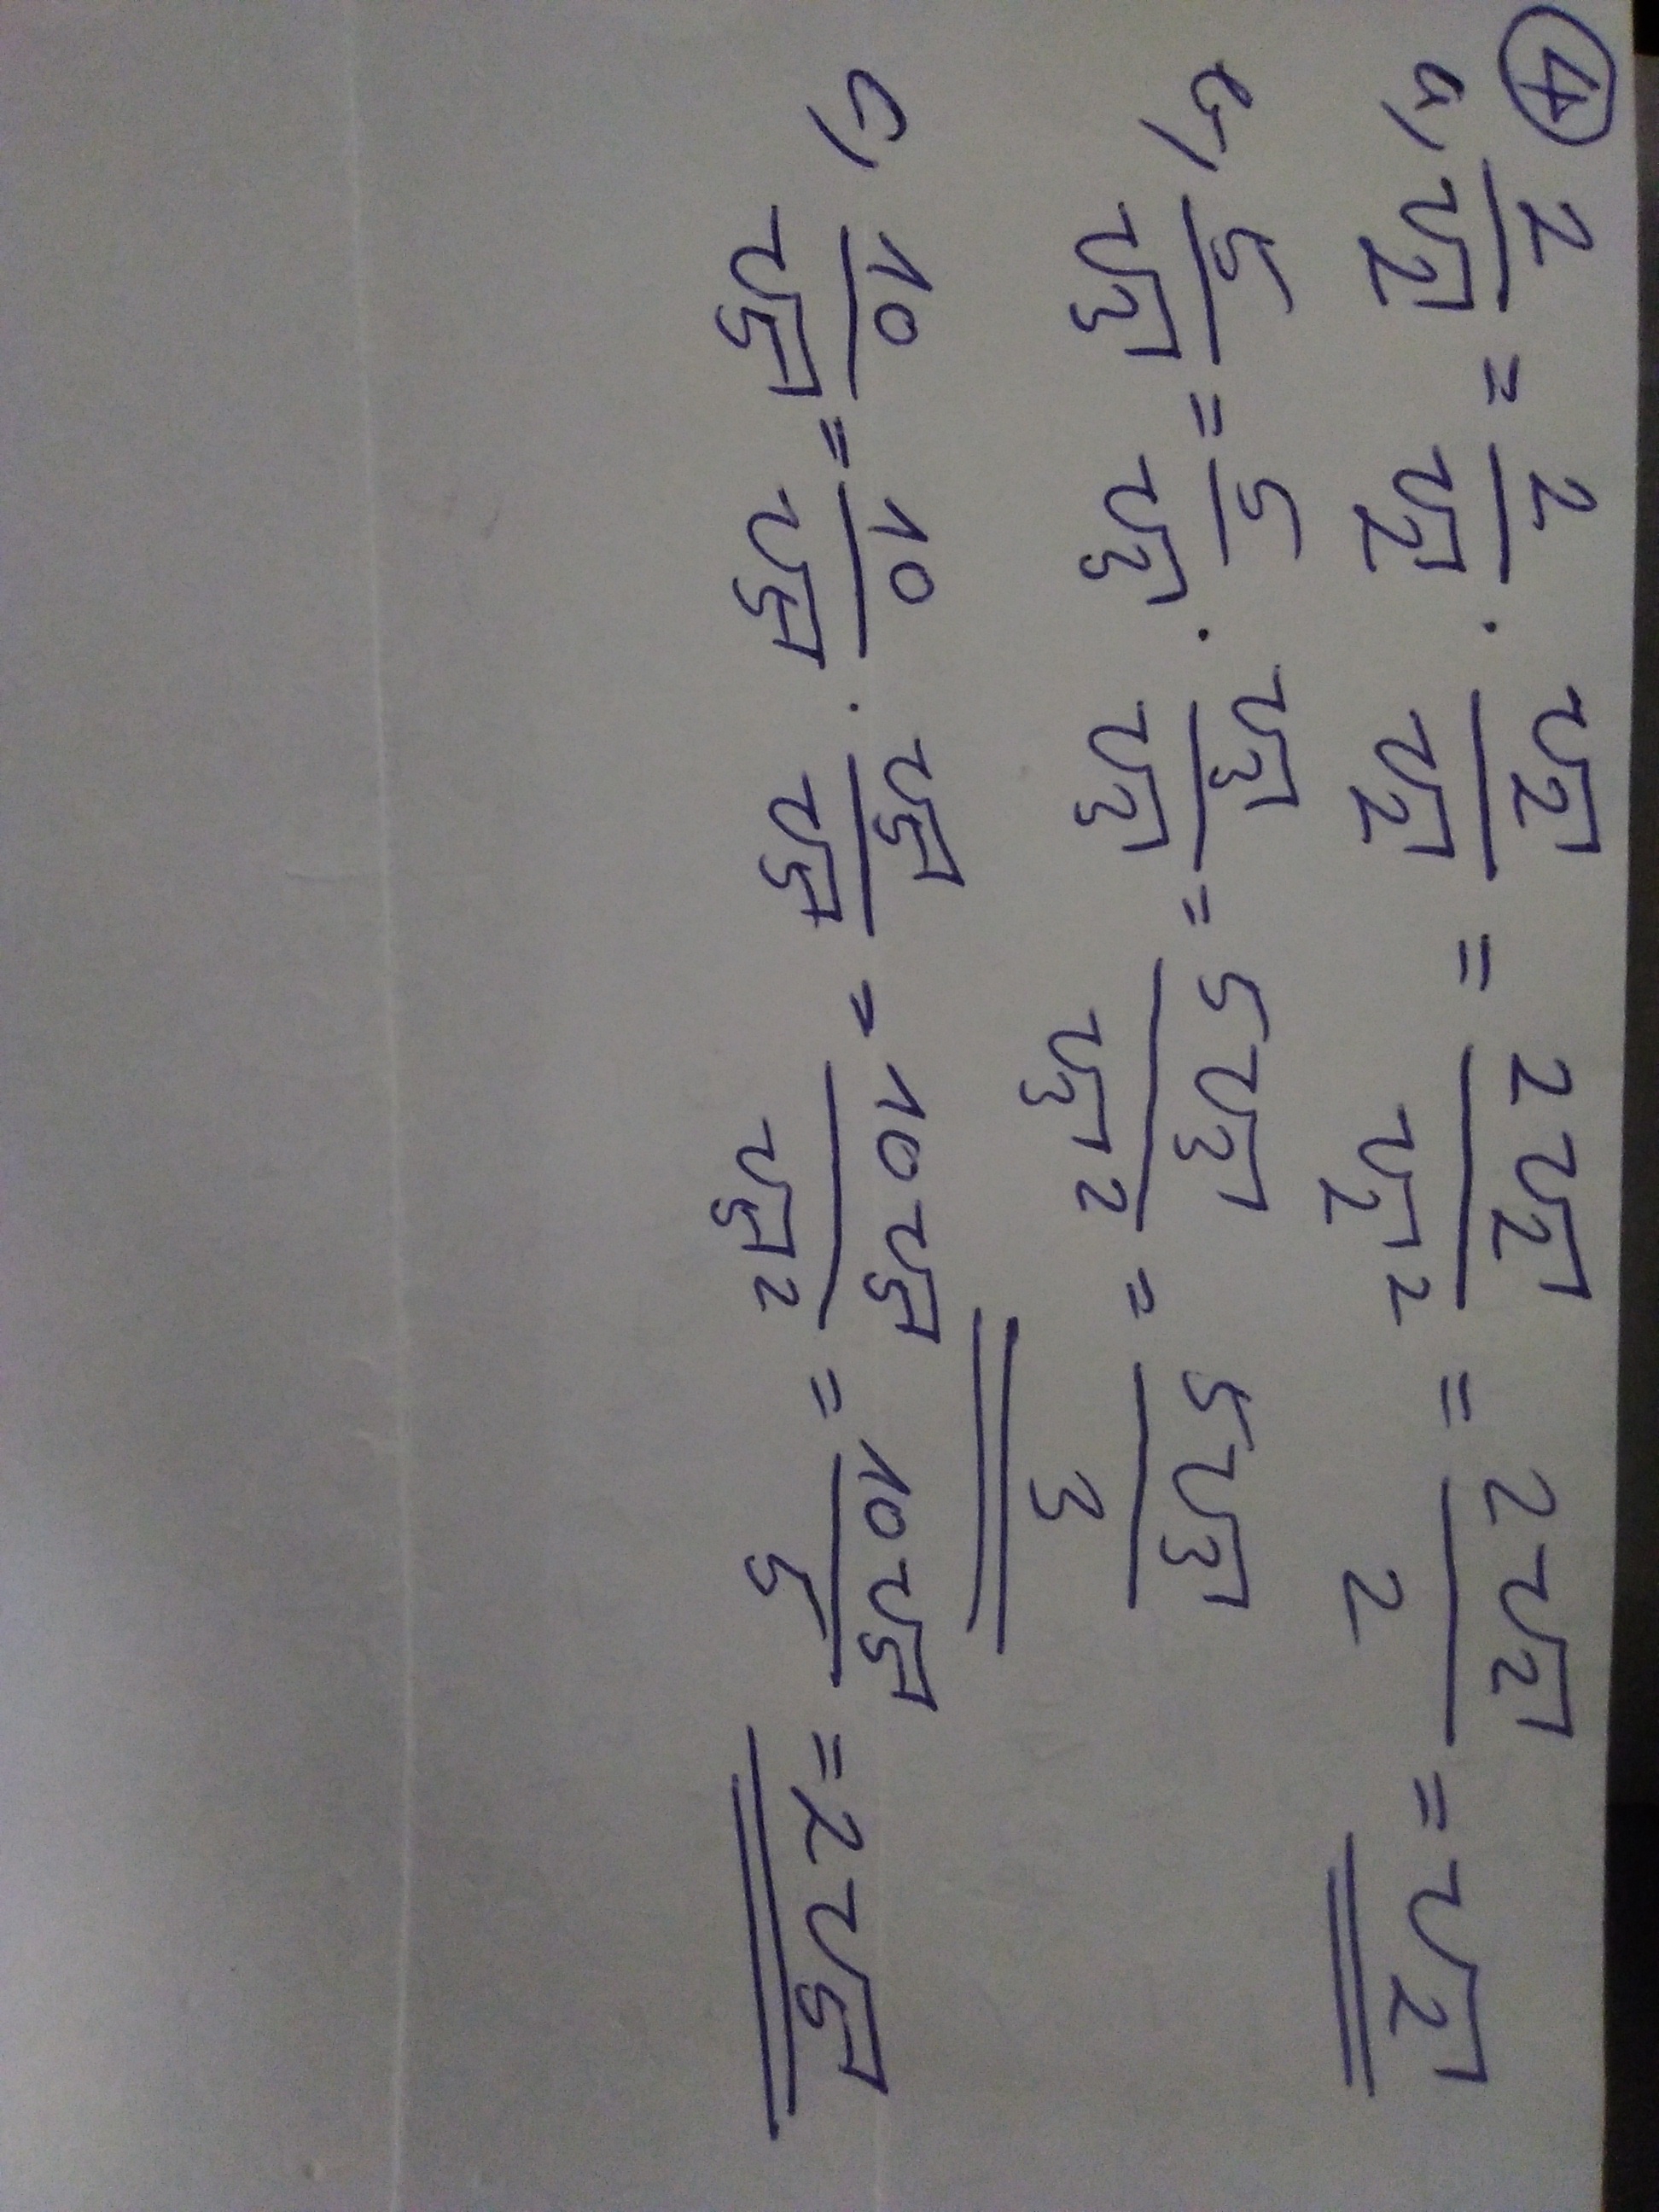 ④
a, 2/√2 = 2/√2 · √2/√2 = 2√2/√2² = 2√2/2 = √2
b, 5/√3 = 5/√3 · √3/√3 = 5√3/√3² = 5√3/3
c, 10/√5 = 10/√5 · √5/√5 = 10√5/√5² = 10√5/5 = 2√5